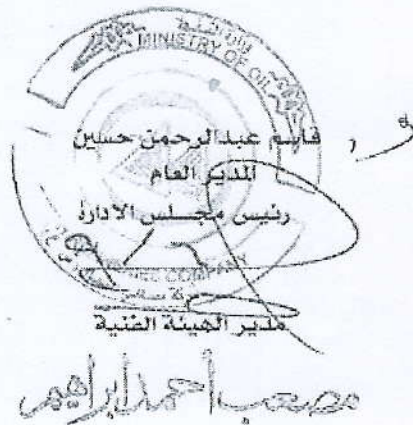 MINISTRY OF OIL
قاسم عبدالرحمن حسين
المدير العام
رئيس مجلس الادارة
COMPANY
مدير الهيئة الفنية
مصعب أحمد ابراهيم